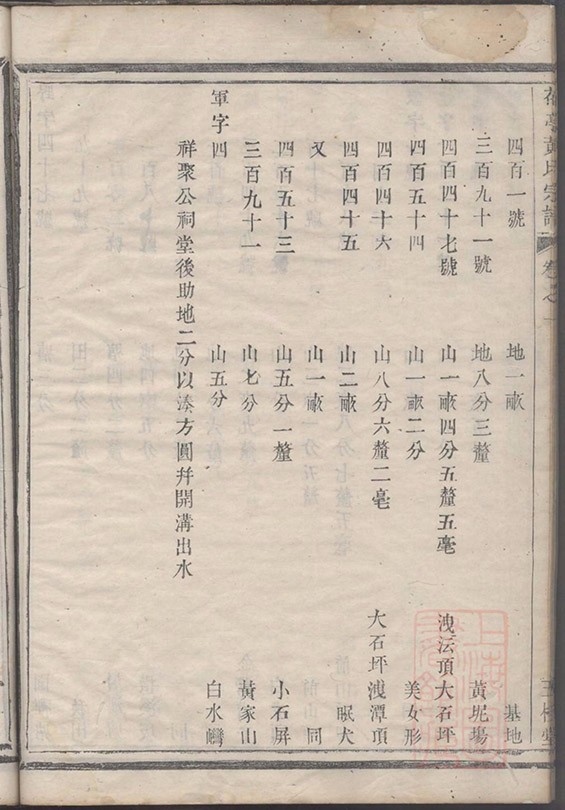 黃氏宗譜 卷之一
四百一號 地一畝 基地
三百九十一號 地八分三釐 黃坭塲
四百四十七號 山一畝四分五釐五毫 洩沄頂大石坪
四百五十四 山一畝二分 美女形
四百四十六 山八分六釐二毫 大石坪洩潭頂
四百四十五 山二畝 眠犬
又 山一畝 同
四百五十三 山五分一釐 小石屏
三百九十一 山七分 黃家山
軍字四 山五分 白水灣
祥聚公祠堂後助地二分以湊方圓幷開溝出水